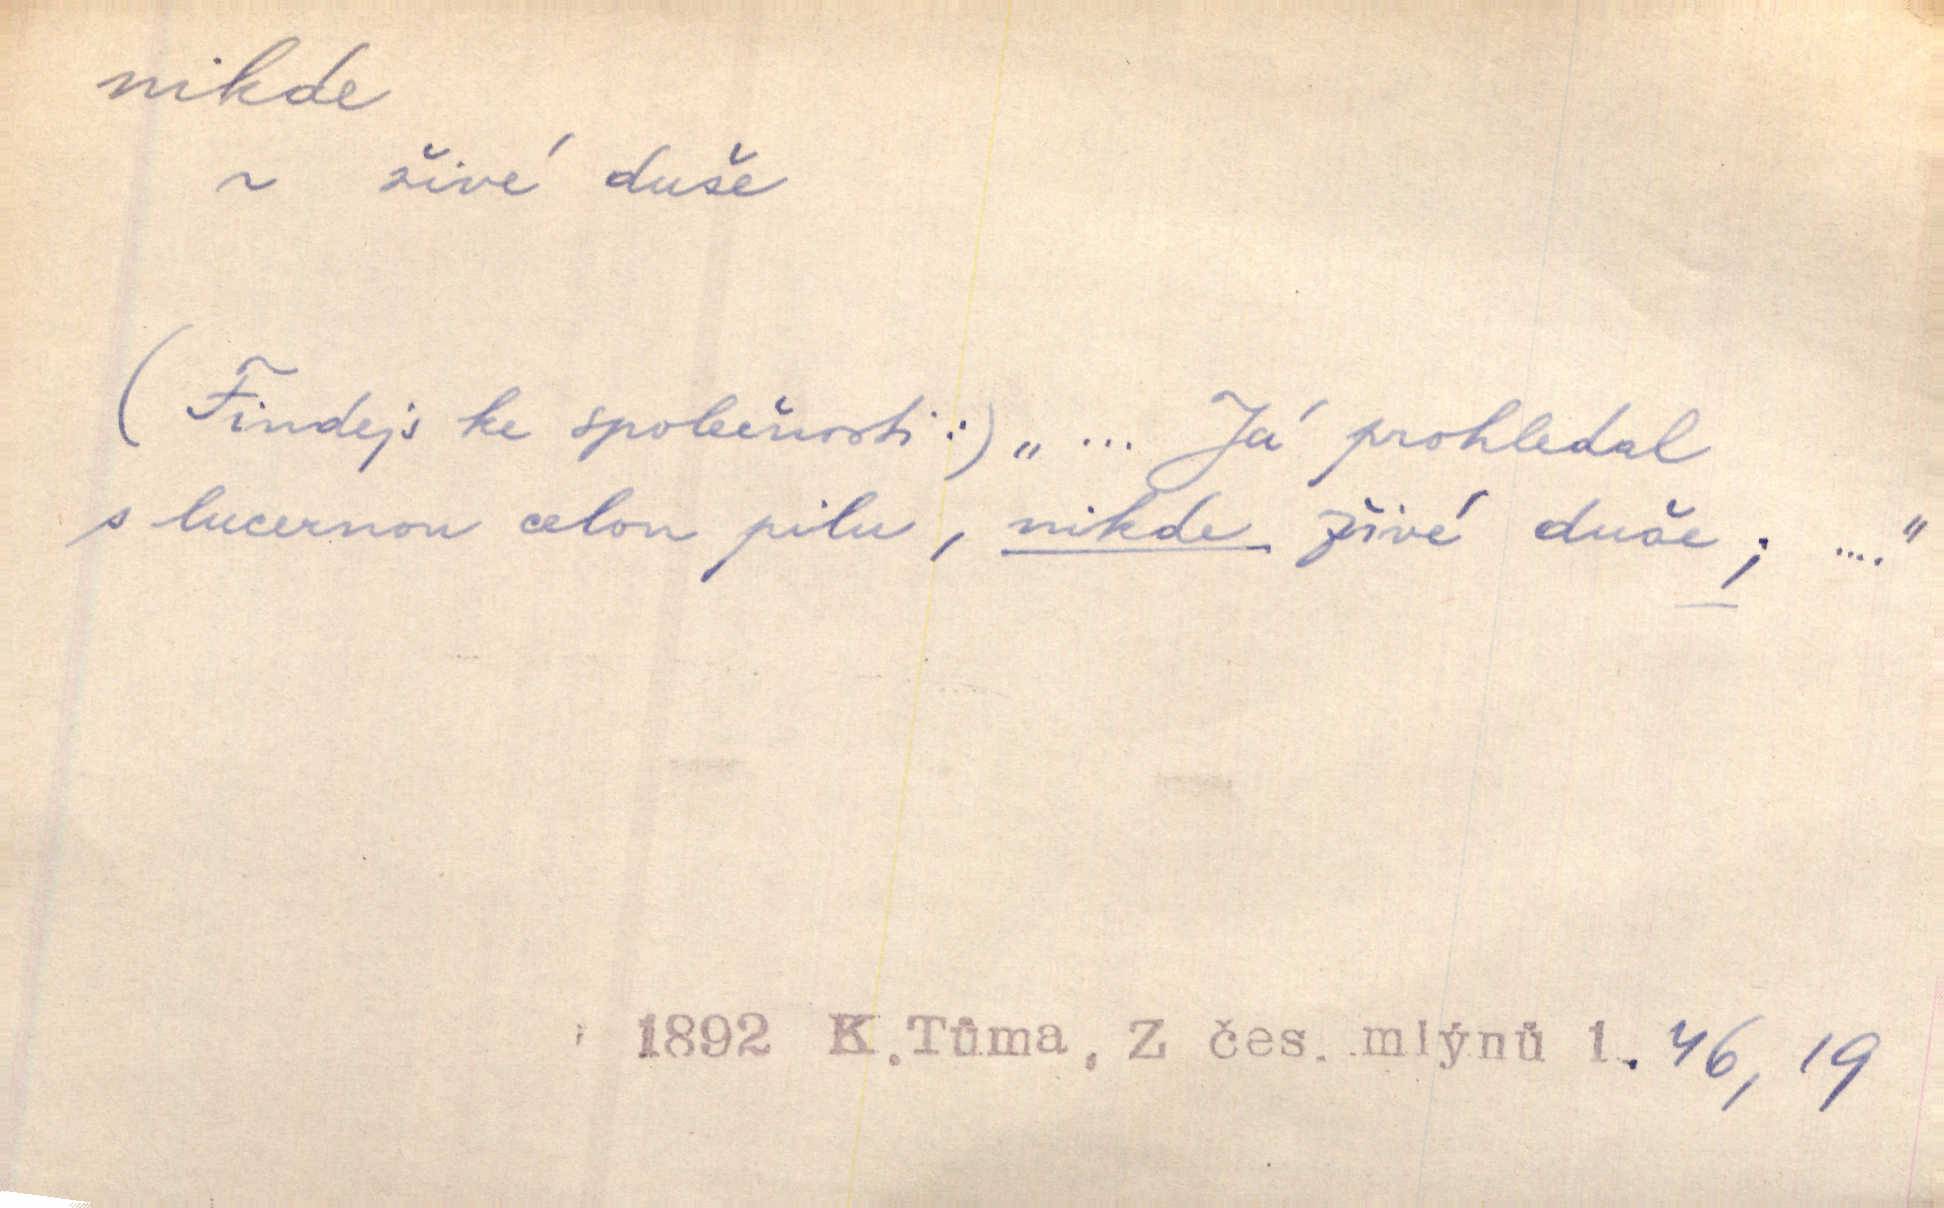 nikde
~ živé duše
(Findejs ke společnosti:) „... Já prohledal
s lucernou celou pilu, nikde živé duše; ...."
1892 K.Tůma, Z čes. mlýnů 1. 46, 19